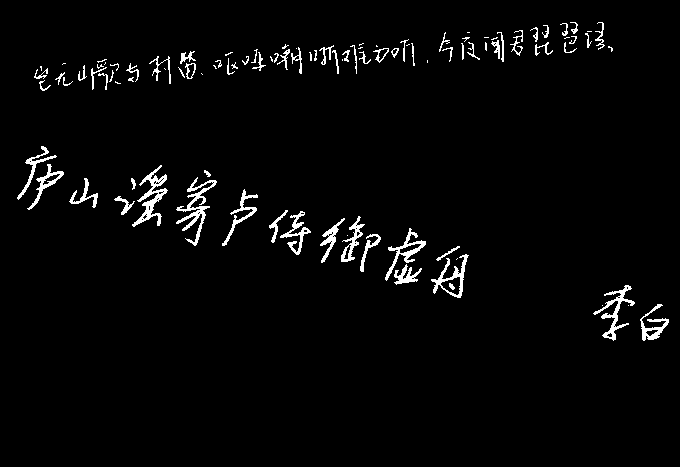 岂无山歌与村笛、呕哑嘲哳难为听，今夜闻君琵琶语、
庐山谣寄卢侍御虚舟
李白